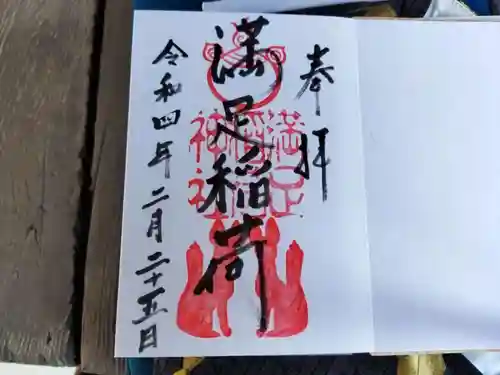 奉拝
満足稲荷
満足
稲荷
神社
令和四年二月二十五日